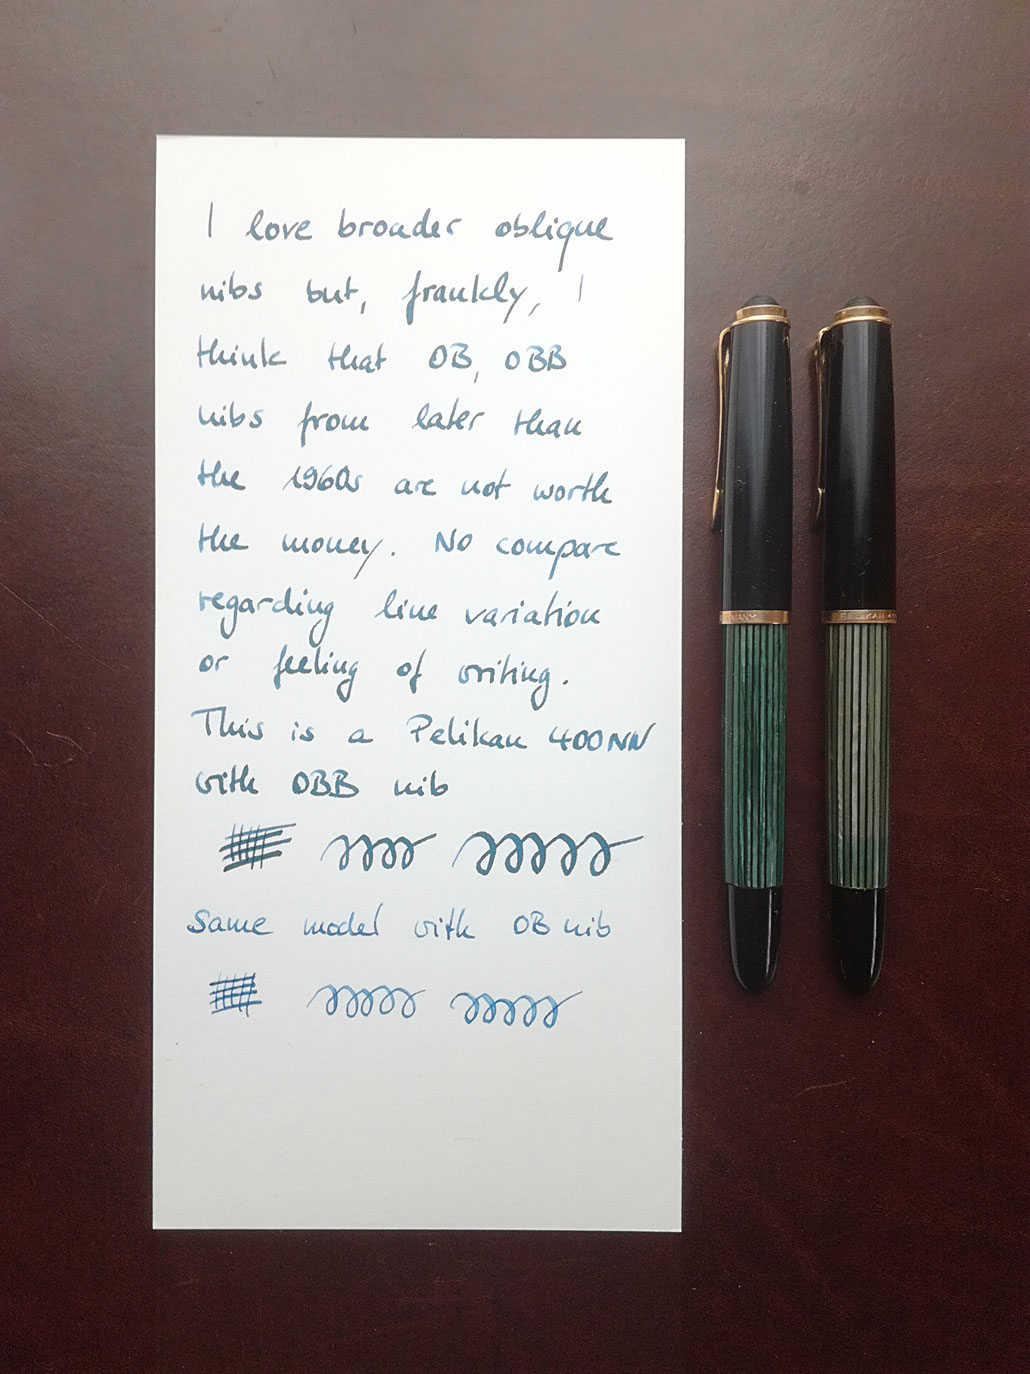 I love broader oblique
nibs but, frankly, I
think that OB, OBB
nibs from later than
the 1960s are not worth
the money. No compare
regarding line variation
or feeling of writing.
This is a Pelikan 400NN
with OBB nib
Same model with OB nib